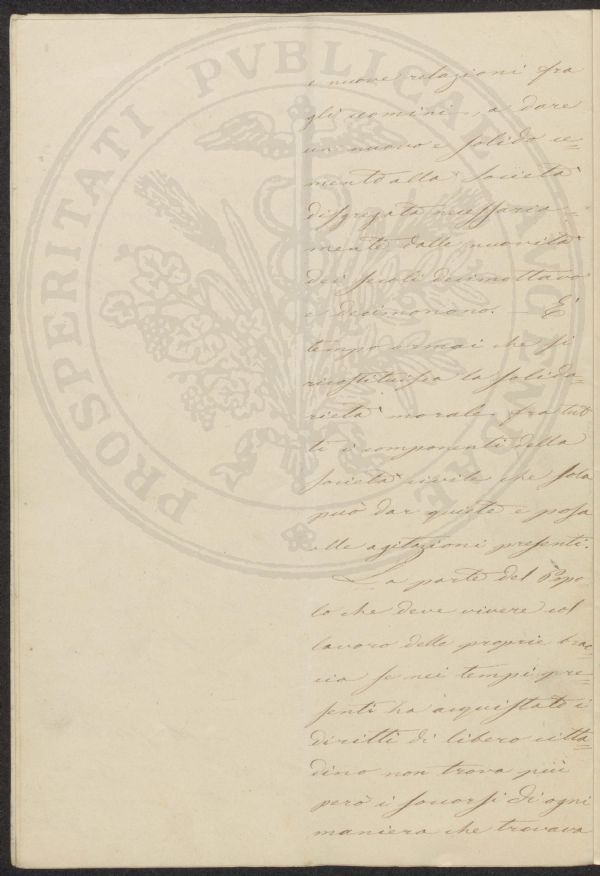 e nuove relazioni fra
gli uomini, a dare
un nuovo e solido ce=
mento alla Società
disgregata necessaria=
mente dalle novità
dei secoli decimottavo
e decimonono. — È
tempo ormai che si
ricostituisca la solida=
rietà morale fra tut=
ti i componenti della
società civile che sola
può dar quiete e posa
alle agitazioni presenti.
La parte del Popo=
lo che deve vivere col
lavoro delle proprie brac=
cia se nei tempi pre=
senti ha acquistato i
diritti di libero citta=
dino non trova più
però i soccorsi di ogni
maniera che trovava
PROSPERITATI PVBLICAE AVGENDAE